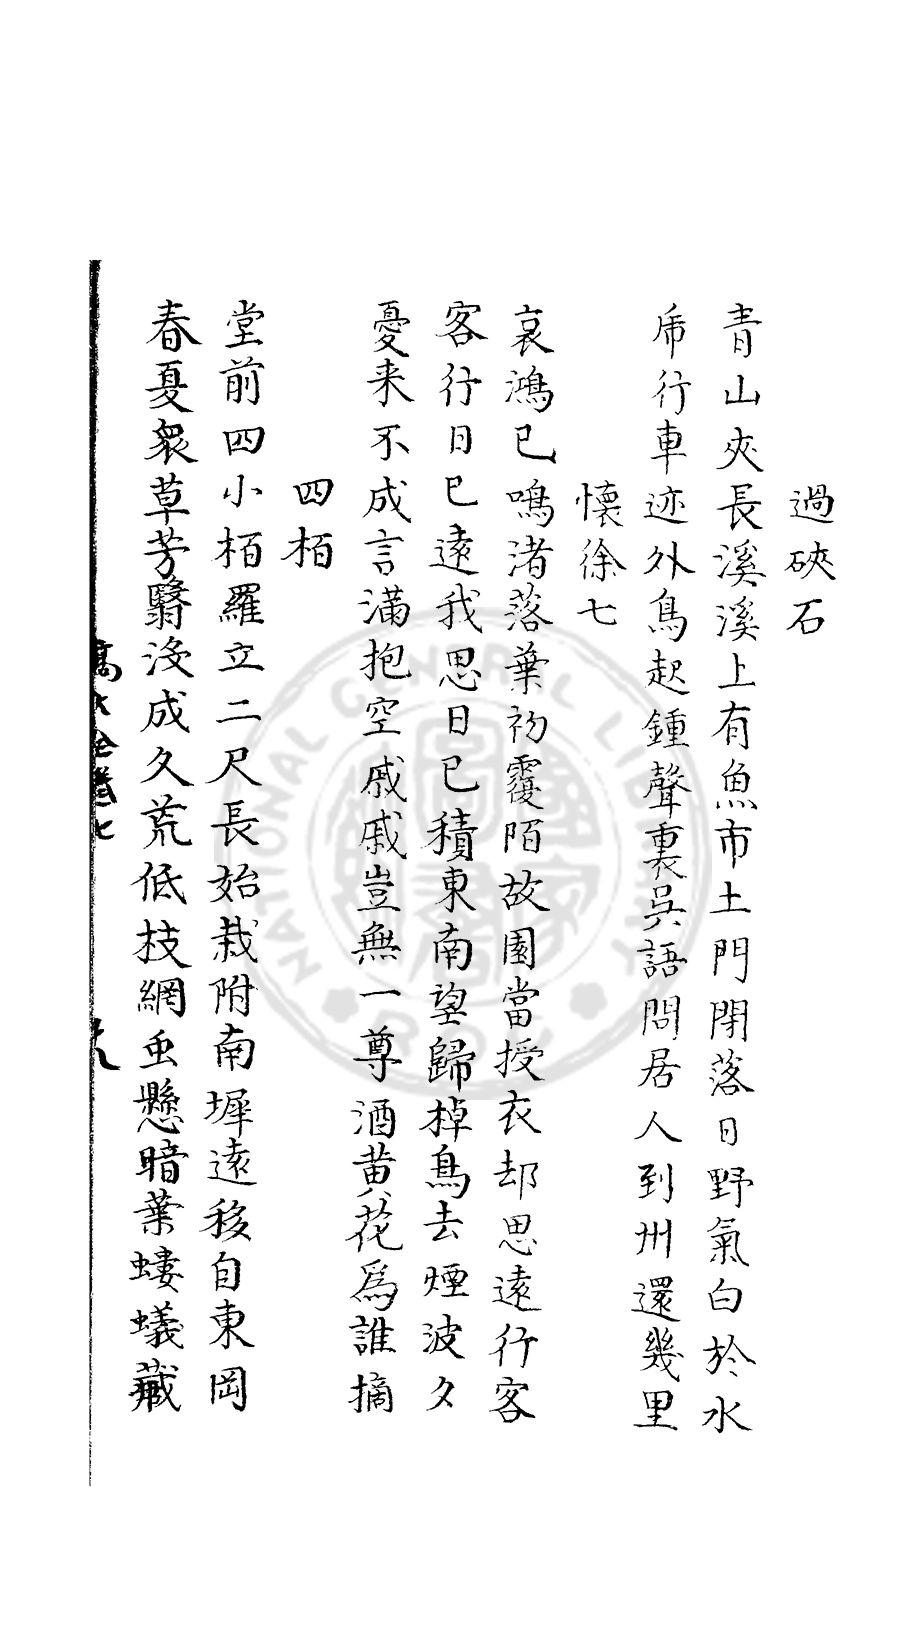 過硤石
青山夾長溪溪上有魚市土門閉落日野氣白於水
帋行車迹外鳥起鍾聲裏吳語問居人到州還幾里
懷徐七
哀鴻已鳴渚落葉初覆陌故園當授衣却思遠行客
客行日已遠我思日已積東南望歸棹鳥去煙波夕
憂来不成言滿抱空戚戚豈無一尊酒黄花爲誰摘
四栢
堂前四小栢羅立二尺長始栽附南墀遠移自東岡
春夏衆草芳翳沒成久荒低枝網虫懸暗葉螻蟻藏
高大全集七
八
NATIONAL CENTRAL LIBRARY
R.O.C.